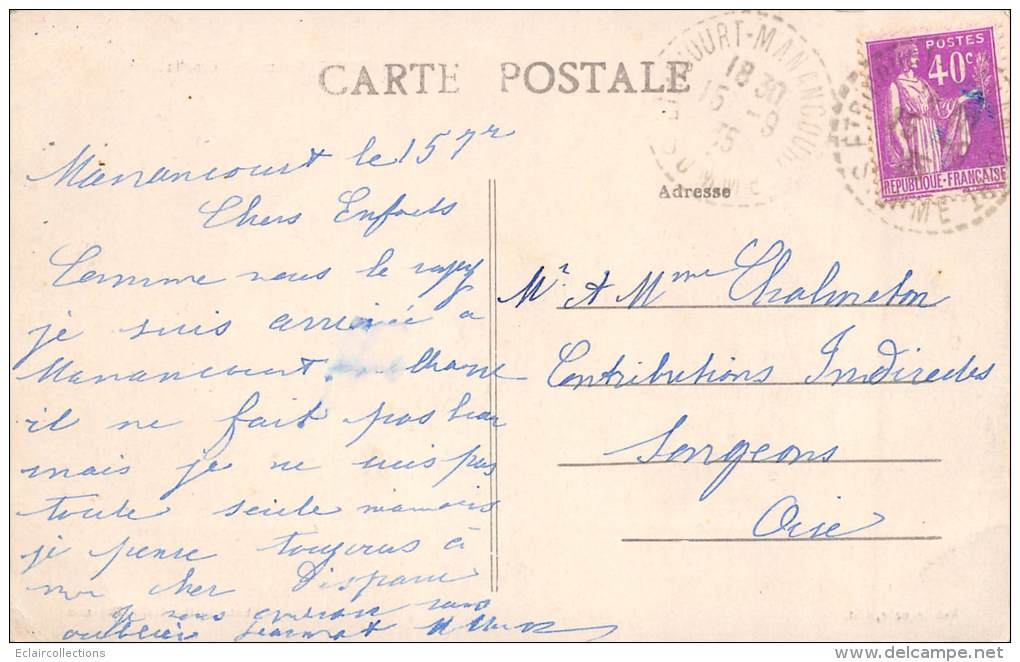 CARTE POSTALE
COURT-MANANCOURT
18 30
15 -9
35
SOMME
POSTES
40c
REPUBLIQUE-FRANÇAISE
Manancourt le 15 7re
Chers Enfants
Comme vous le
je suis arrivée a
Manancourt.
il ne fait pas beau
mais je ne suis pas
toute seule mamais
je pense toujours à
mon cher Disparu
je vous
oublier
Adresse
Mr & Mme Chalmeton
Contributions Indirectes
Songeons
Oise
Eclaircollections
delcampe.net